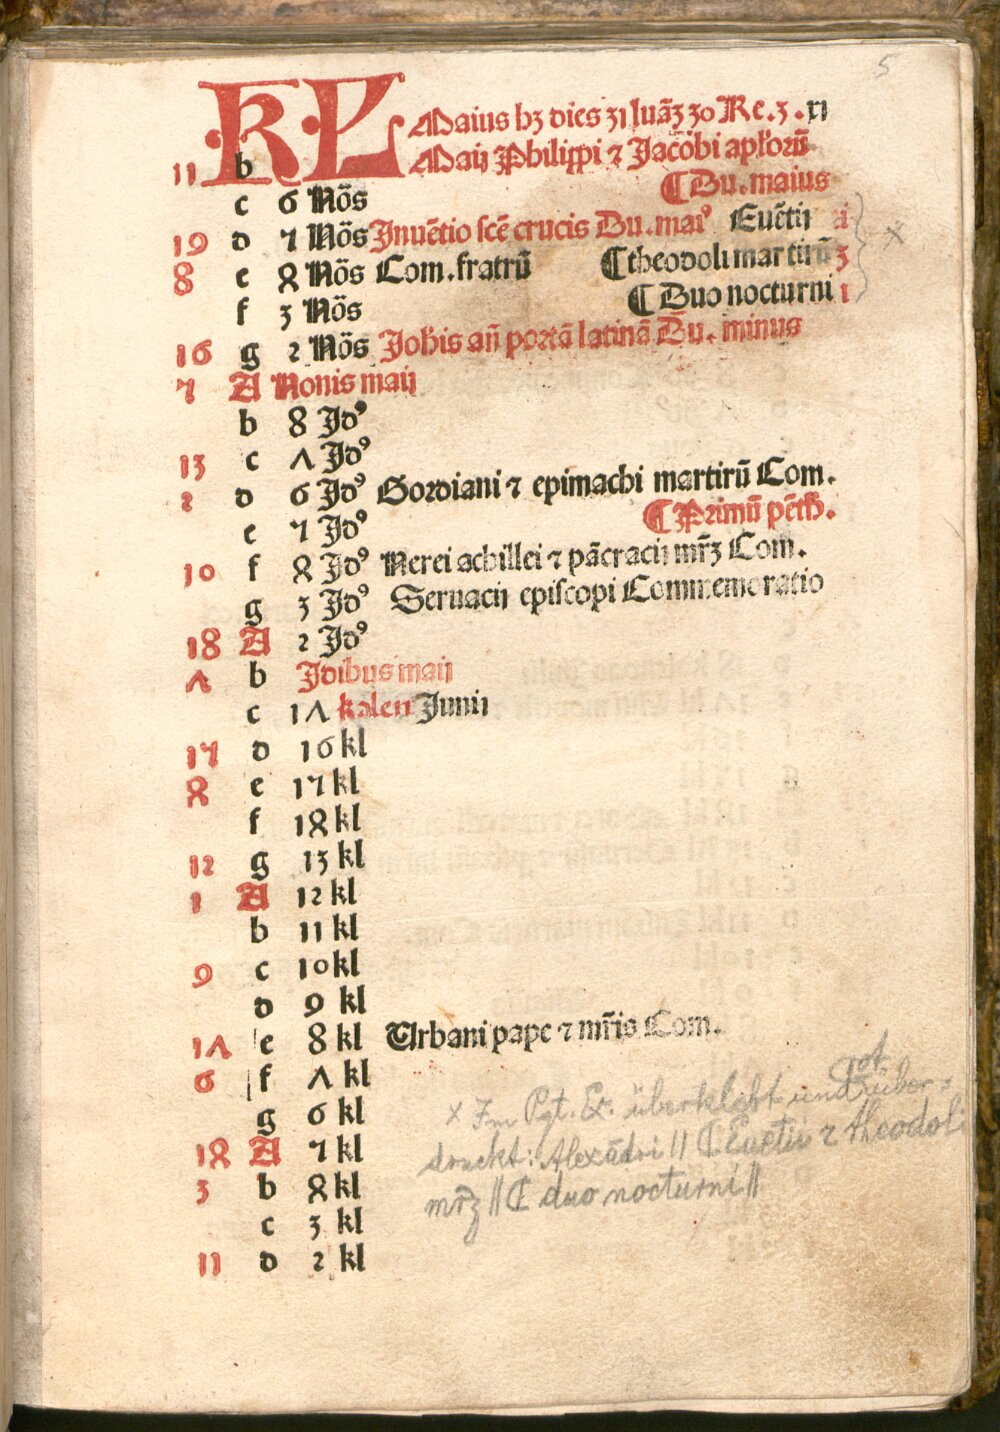 5
KL Maius hʒ dies 31 luāʒ 30 Re.3.xi
11 b Maij Philippi ⁊ Jacobi apl'orū
¶ Du.maius
c 6 Nōs
19 d 7 Nōs Inuētio scē crucis Du.maiꝰ Euētij
8 e 8 Nōs Com.fratrū ¶ theodoli martirū
f 3 Nōs ¶ Duo nocturni
16 g 2 Nōs Joh̄is an̄ portā latinā Du. minus
7 A Nonis maij
b 8 Jdꝰ
13 c Λ Jdꝰ
2 d 6 Jdꝰ Gordiani ⁊ epimachi martirū Com.
e 7 Jdꝰ ¶ Primū pēth.
10 f 8 Jdꝰ Nerei achillei ⁊ pācracij mr̄ʒ Com.
g 3 Jdꝰ Seruacij episcopi Commemoratio
18 A 2 Jdꝰ
Λ b Jdibus maij
c 1Λ kalen Junij
17 d 16 kl
8 e 17 kl
f 18 kl
12 g 13 kl
1 A 12 kl
b 11 kl
9 c 10 kl
d 9 kl
1Λ e 8 kl Urbani pape ⁊ mr̄is Com.
6 f Λ kl
g 6 kl
18 A 7 kl
3 b 8 kl
c 3 kl
11 d 2 kl
rot
x Im Pgt. Ex. überklebt und über-
druckt: Alexādri || ¶ Euētii ⁊ theodoli
mr̄ʒ || ¶ duo nocturni ||